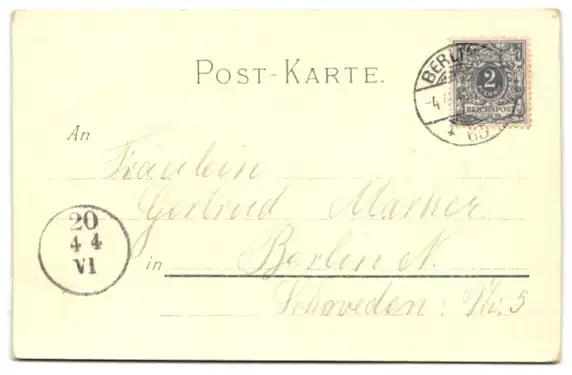 POST-KARTE.
BERLIN
2
PFENNIG
REICHSPOST
An
Fräulein
Gertrud Marker
20
4 4
VI
in Berlin N.
Schweden: Str. 5